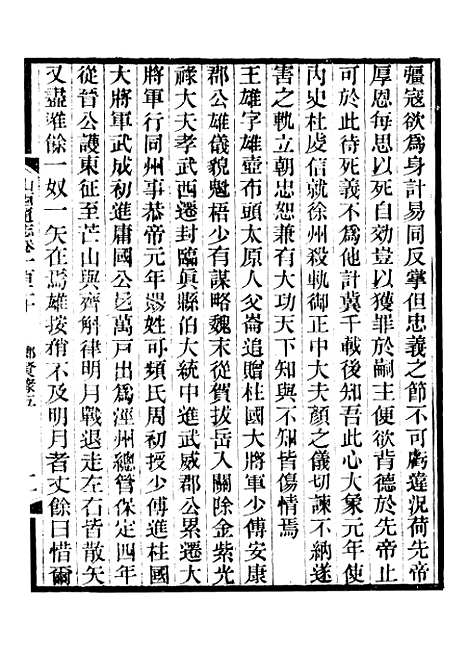 疆寇欲爲身計易同反掌但忠義之節不可虧違況荷先帝
厚恩每思以死自効豈以獲罪於嗣主便欲背德於先帝止
可於此待死義不爲他計冀千載後知吾此心大象元年使
內史杜虔信就徐州殺軌御正中大夫顏之儀切諫不納遂
害之軌立朝忠恕兼有大功天下知與不知皆傷情焉
王雄字雄壺布頭太原人父崙追贈柱國大將軍少傅安康
郡公雄儀貌魁梧少有謀略魏末從賀拔岳入關除金紫光
祿大夫孝武西遷封臨眞縣伯大統中進武威郡公累遷大
將軍行同州事恭帝元年賜姓可頻氏周初授少傅進柱國
大將軍武成初進庸國公邑萬戸出爲涇州總管保定四年
從晉公護東征至芒山與齊斛律明月戰退走左右皆散矢
又盡雄餘一奴一矢在焉雄按矟不及明月者丈餘曰惜爾
山西通志卷一百二十 鄉賢錄五